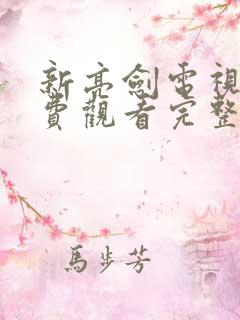 新亮劍電視
費觀看完整
馬步芳